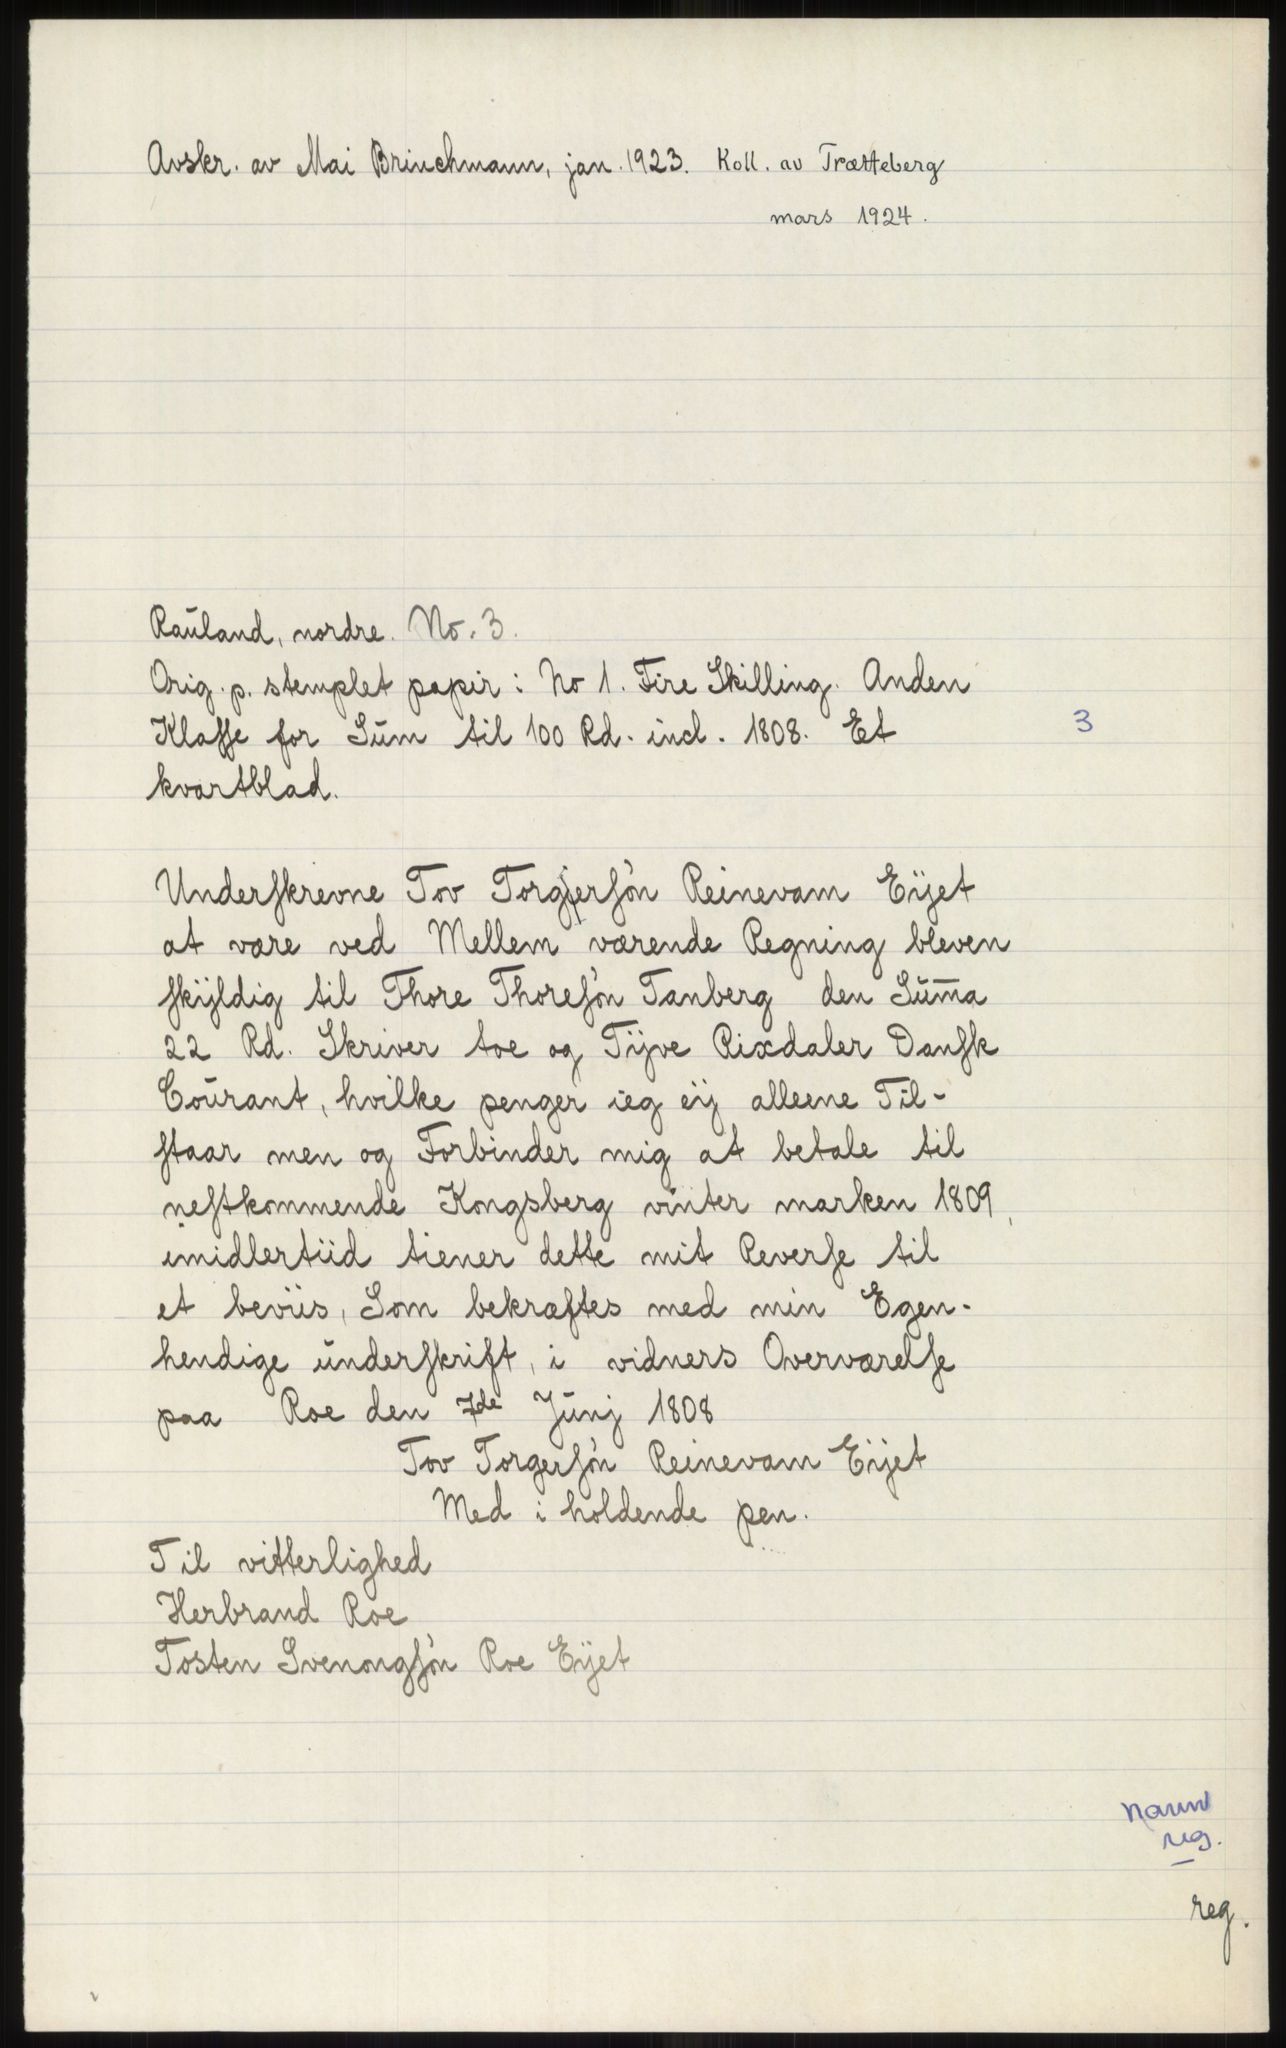 Avskr. av Mai Brinchmann, jan. 1923. Koll. av Trætteberg
mars 1924.
Rauland, nordre. No. 3.
Orig. p. stemplet papir: No 1. Fire Skilling. Anden
Klasse for Sum til 100 Rd. incl. 1808. Et
3
kvartblad.
Underskrevne Tov Torgersøn Reinevam Eijet
at være ved Mellem værende Regning bleven
skijldig til Thore Thoresøn Tanberg den Sum̅a
22 Rd. Skriver toe og Tijve Rixdaler Dansk
Courant, hvilke penger ieg eij alleene Til-
staar men og Forbinder mig at betale til
nestkommende Kongsberg vinter marken 1809,
imidlertiid tiener dette mit Reverse til
et beviis, Som bekræftes med min Egen-
hendige underskrift, i vidners Overværelse
paa Roe den 7de Junj 1808
Tov Torgersøn Reinevam Eijet
Med i holdende pen.
Til vitterlighed
Herbrand Roe
Tosten Svenongsøn Roe Eijet
Navn
reg.
reg.